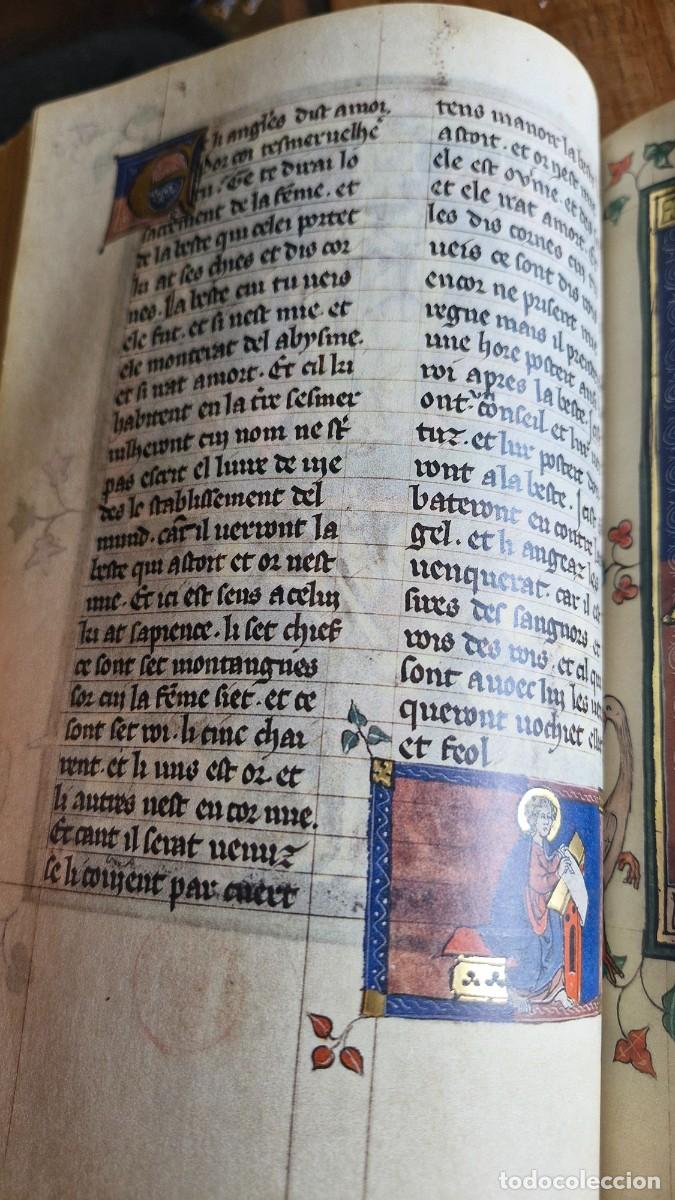 Et li angles dist a moi.
Por coi tesmervelhe
tu. Ge te dirai lo
sacrement de la feme. et
de la beste qui celei portet
ki at ses chies et dis cor
nes. La beste cui tu veis
ele fut. et si nest mie. et
ele monterat del abysme.
et si vat a mort. Et cil ki
habitent en la tre sesmer
vilheront cui nom ne st
pas escrit el livre de vie
des le stablissement del
mund. car il veront la
beste qui astoit et or nest
mie. Et ici est sens a celui
ki at sapience. li set chief
ce sont set montangnes
sor cui la feme siet. et ce
sont set roi. li cinc chai
rent. et li uns est or. et
li autres nest encor mie.
Et cant il serat venuz
se li covient par
tens manoir la beste
astoit. et or nest mie
ele est ovime. et
et ele vat a mort.
les dis cornes cui tu
veis ce sont dis rois
encor ne prisent mie
regne mais il
une hore
roi apres la beste.
ont conseil et lur
tuz. et lur
ront a la beste.
bateront encontre
gel. et li angeaz les
venquerat. car il est
sires des sangnors et
rois des rois. et cil qui
sont avoec lui les
queront vochiet
et feol
todocoleccion